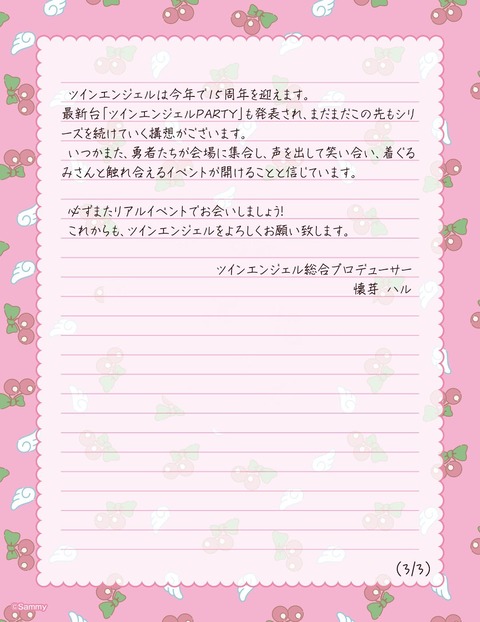 ツインエンジェルは今年で15周年を迎えます。
最新台「ツインエンジェルPARTY」も発表され、まだまだこの先もシリ
ーズを続けていく構想がございます。
いつかまた、勇者たちが会場に集合し、声を出して笑い合い、着ぐる
みさんと触れ合えるイベントが開けることと信じています。
必ずまたリアルイベントでお会いしましょう!
これからも、ツインエンジェルをよろしくお願い致します。
ツインエンジェル総合プロデューサー
懐芽 ハル
(3/3)
©Sammy